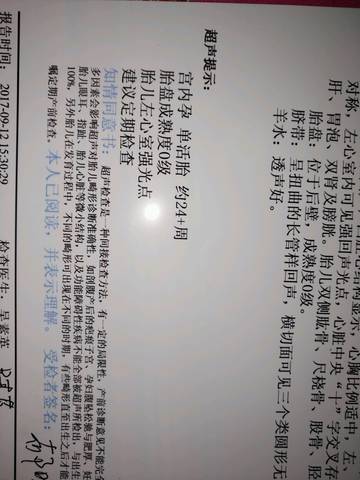 对称，左心室内可见强回声光点，心脏中央“十”字交叉存
肝、胃泡、双肾及膀胱。胎儿双侧肱骨、尺桡骨、股骨、胫
胎盘：位于后壁，成熟度0级。
脐带：呈扭曲的长管样回声，横切面可见三个类圆形无
羊水：透声好。
超声提示：
宫内孕 单活胎 约24+周
胎盘成熟度0级
胎儿左心室强光点
建议定期检查
知情同意书：超声检查是一种间接检查方法，有一定的局限性，产前诊断意见不能完全
多因素会影响超声对胎儿畸形诊断准确性，如剖腹产后的疤痕子宫、孕妇腹壁松弛与肥厚、妊
胎儿眼耳、指趾、胎儿心脏等微小结构，以及功能障碍性疾病不能全部被超声所检出，与出生
100%，另外胎儿在发育过程中，不同的畸形可出现在不同的时期，有些畸形直至出生之后才能
嘱定期产前检查。本人已阅读，并表示理解。 受检者签名：
报告时间：2017-09-12 15:30:29 检查医生：吴素英